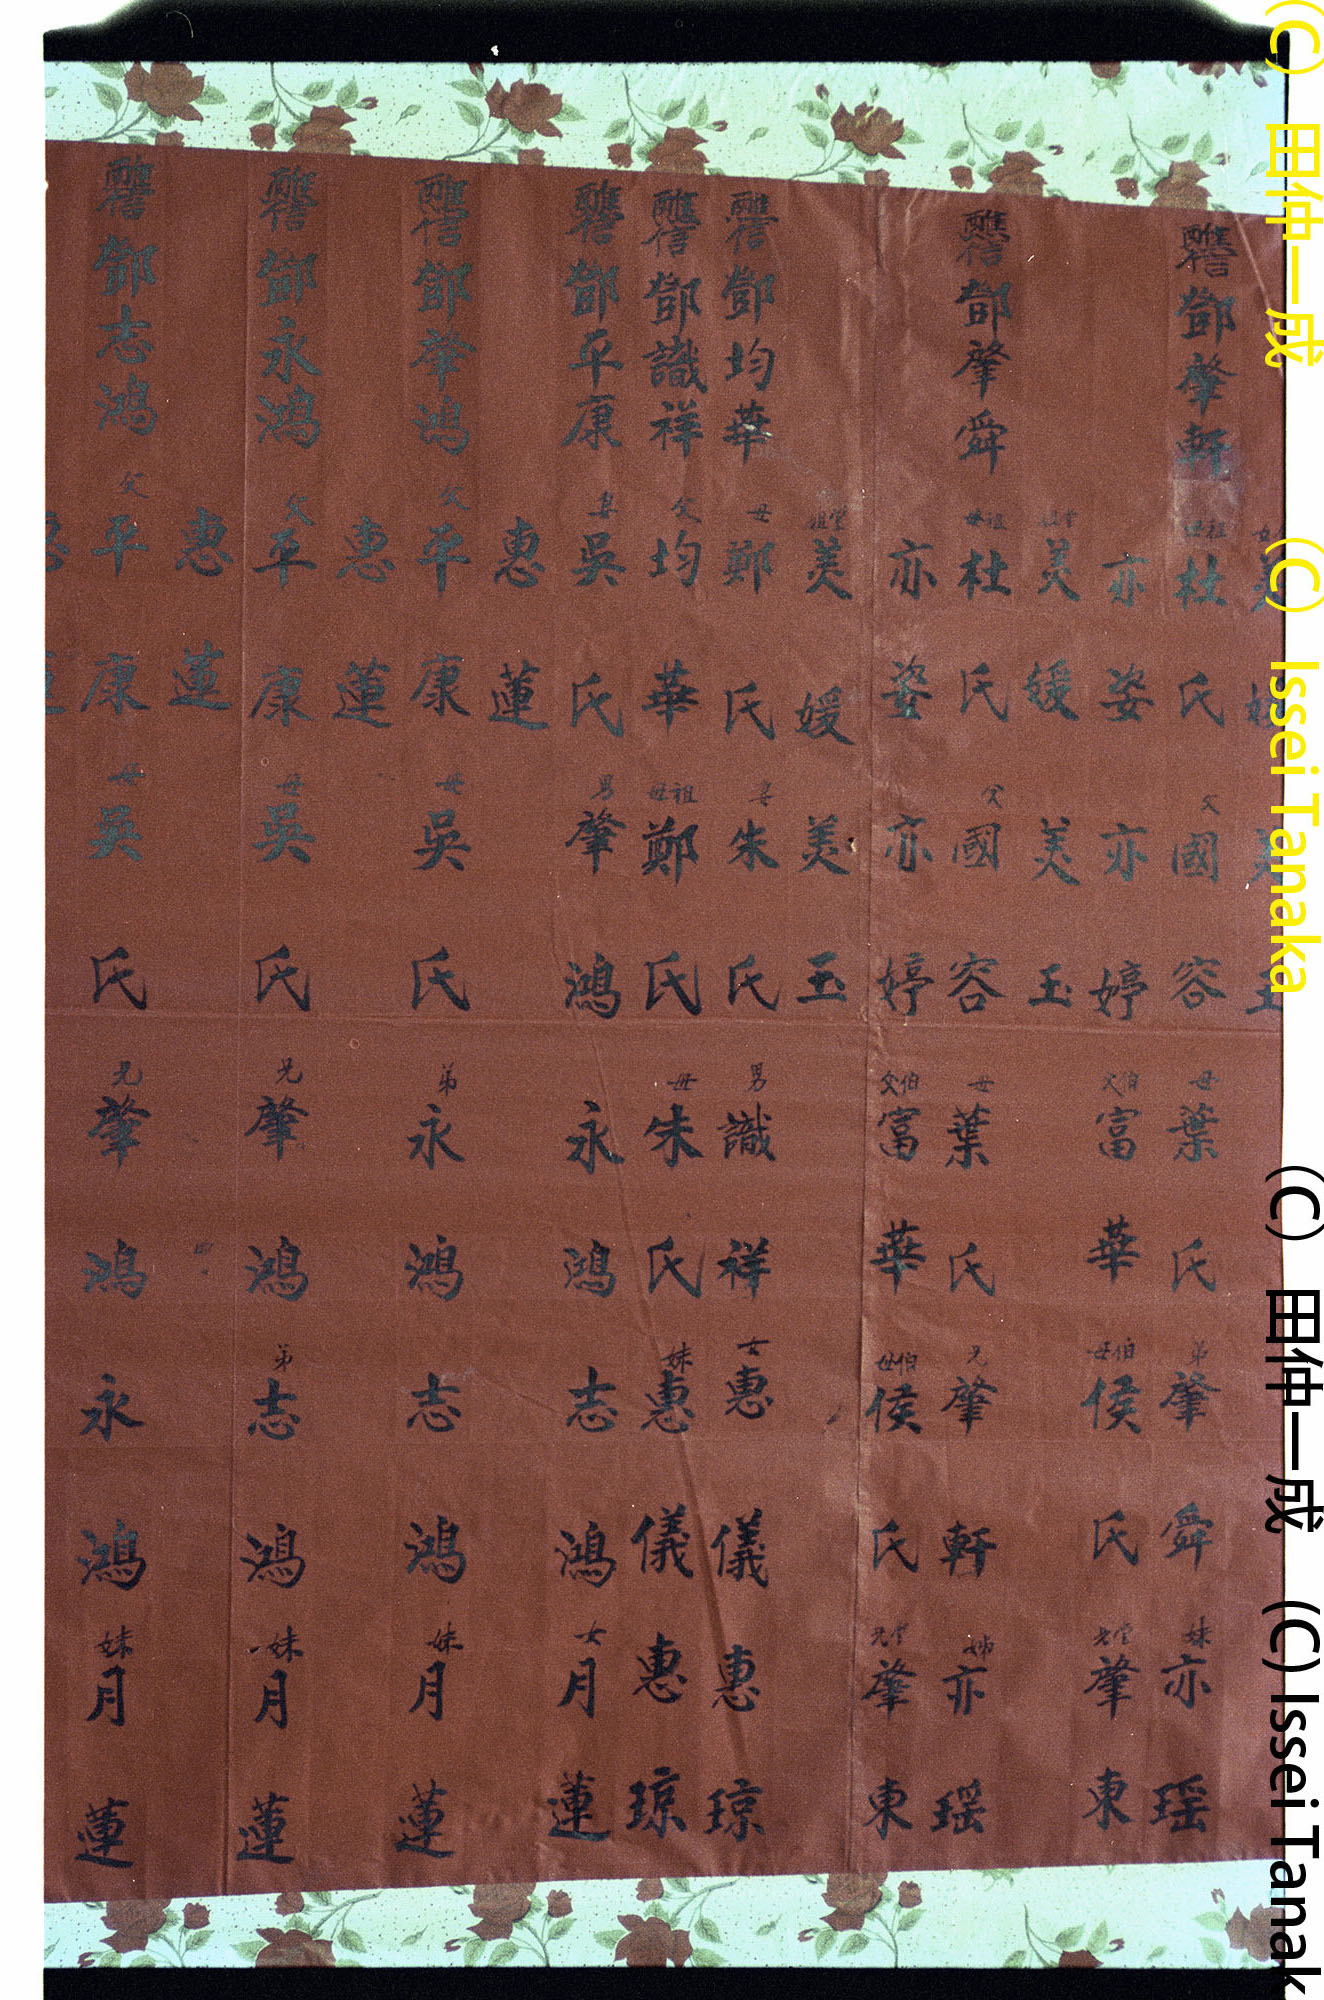 醮信鄧肇軒祖母杜氏父國容母葉氏弟肇舜妹亦瑶
亦姿亦婷伯父富華伯母侯氏堂兄肇東
美媛美玉
醮信鄧肇舜祖母杜氏父國容母葉氏兄肇軒姊亦瑶
亦姿亦婷伯父富華伯母侯氏堂兄肇東
美媛美玉
醮信鄧均華母鄭氏妻朱氏男識祥女惠儀惠琼
醮信鄧識祥父均華祖母鄭氏母朱氏妹惠儀惠琼
醮信鄧平康妻吳氏男肇鴻永鴻志鴻女月蓮
惠蓮
醮信鄧肇鴻父平康母吳氏弟永鴻志鴻妹月蓮
惠蓮
醮信鄧永鴻父平康母吳氏兄肇鴻弟志鴻妹月蓮
惠蓮
醮信鄧志鴻父平康母吳氏兄肇鴻永鴻妹月蓮
(C) 田仲一成 (C) Issei Tanaka
(C) 田仲一成 (C) Issei Tanak